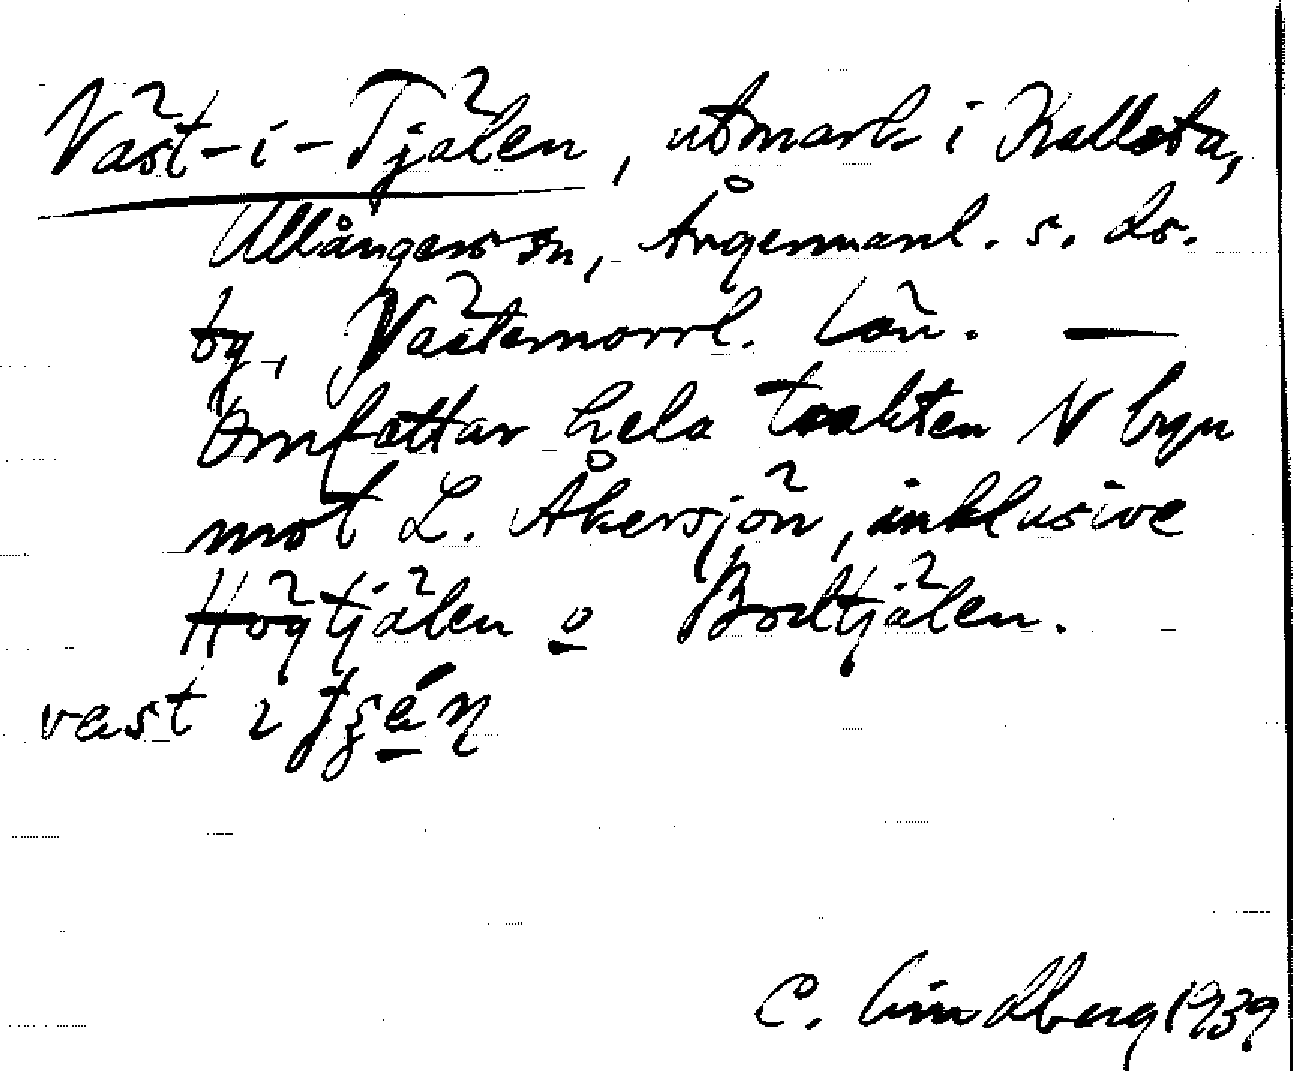 Väst-i-Tjälen, utmark i Kallsta,
Ullångers sn, Ångermanl. s. ds.
tg, Västernorrl. län. —
Omfattar hela trakten N byn
mot L. Åkersjön, inklusive
Högtjälen o Bodtjälen.
vast ɩ
C. Lindberg 1939